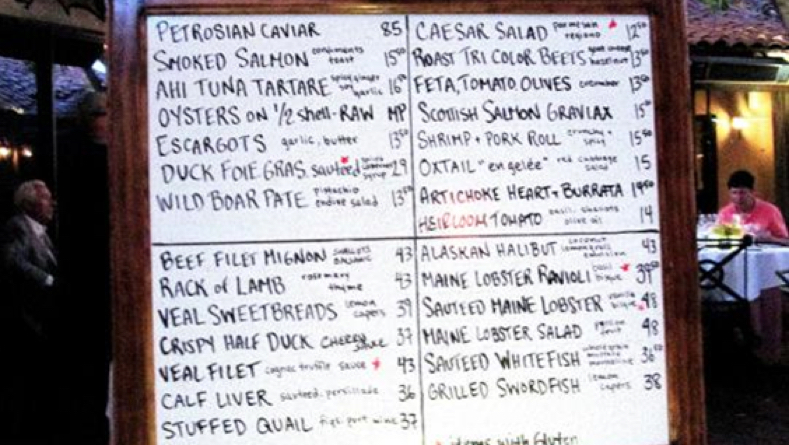 PETROSIAN CAVIAR 85
SMOKED SALMON condiments toast 15⁵⁰
AHI TUNA TARTARE spicy ginger soy garlic 16⁵⁰
OYSTERS ON 1/2 shell-RAW MP
ESCARGOTS garlic, butter 13⁵⁰
DUCK FOIE GRAS sautéed syrup 29
WILD BOAR PATE pistachio endive salad 13⁵⁰
CAESAR SALAD parmesan reggiano 12⁵⁰
ROAST TRI COLOR BEETS goat cheese hazelnut 13⁵⁰
FETA, TOMATO, OLIVES cucumber 13⁵⁰
SCOTTISH SALMON GRAVLAX 15⁵⁰
SHRIMP + PORK ROLL crunchy + spicy 15⁵⁰
OXTAIL "en gelée" red cabbage salad 15
ARTICHOKE HEART + BURRATA 19⁵⁰
HEIRLOOM TOMATO basil, shallots olive oil 14
BEEF FILET MIGNON SHALLOTS BALSAMIC 43
RACK OF LAMB rosemary thyme 43
VEAL SWEETBREADS lemon capers 39
CRISPY HALF DUCK CHERRY sauce 37
VEAL FILET cognac truffle sauce 43
CALF LIVER sauteed, persillade 36
STUFFED QUAIL figs, port wine 37
ALASKAN HALIBUT coconut lemongrass emulsion 43
MAINE LOBSTER RAVIOLI basil bisque 39⁵⁰
SAUTEED MAINE LOBSTER vanilla bisque 48
MAINE LOBSTER SALAD passion fruit 48
SAUTEED WHITEFISH whole grain mustard 36⁵⁰
GRILLED SWORDFISH lemon capers 38
items with Gluten